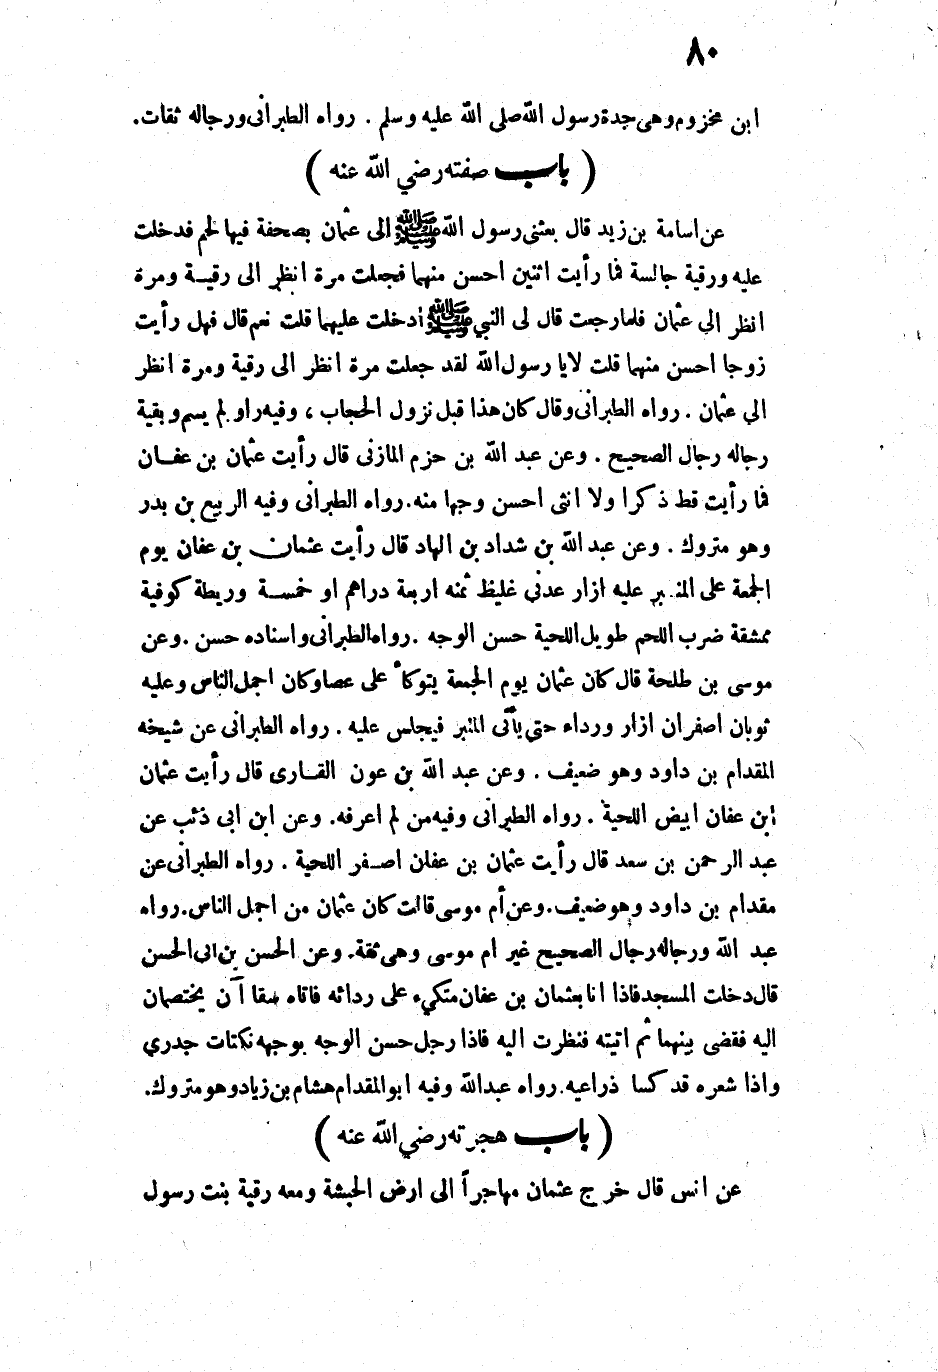 ٨٠
ابن مخزوم وهى جدة رسول الله صلى الله عليه وسلم . رواه الطبرانى ورجاله ثقات.
( باب صفته رضي الله عنه )
عن اسامة بن زيد قال بعثنى رسول الله ﷺ الى عثمان بصحفة فيها لحم فدخلت
عليه ورقية جالسة فما رأيت اثنين احسن منهما فجعلت مرة انظر الى رقيـة ومرة
انظر الي عثمان فلما رجعت قال لى النبي ﷺ أدخلت عليهما قلت نعم قال فهل رأيت
زوجا احسن منهما قلت لا يا رسول الله لقد جعلت مرة انظر الى رقية ومرة انظر
الي عثمان . رواه الطبرانى وقال كان هذا قبل نزول الحجاب ، وفيه راو لم يسم وبقية
رجاله رجال الصحيح . وعن عبد الله بن حزم المازنى قال رأيت عثمان بن عفـان
فما رأيت قط ذكرا ولا انثى احسن وجها منه. رواه الطبرانى وفيه الربيع بن بدر
وهو متروك . وعن عبد الله بن شداد بن الهاد قال رأيت عثمان بن عفان يوم
الجمعة على المنبر عليه ازار عدني غليظ ثمنه اربعة دراهم او خمسـة وريطة كوفية
ممشقة ضرب اللحم طويل اللحية حسن الوجه . رواه الطبرانى واسناده حسن . وعن
موسى بن طلحة قال كان عثمان يوم الجمعة يتوكأ على عصا وكان اجمل الناس وعليه
ثوبان اصفران ازار ورداء حتى يأتى المنبر فيجلس عليه . رواه الطبرانى عن شيخه
المقدام بن داود وهو ضعيف . وعن عبد الله بن عون القـارى قال رأيت عثمان
ابن عفان ابيض اللحية . رواه الطبرانى وفيه من لم اعرفه. وعن ابن ابى ذئب عن
عبد الرحمن بن سعد قال رأيت عثمان بن عفان اصـفر اللحية . رواه الطبرانى عن
مقدام بن داود وهو ضعيف. وعن أم موسى قالت كان عثمان من اجمل الناس. رواه
عبد الله ورجاله رجال الصحيح غير ام موسى وهى ثقة. وعن الحسن بن ابى الحسن
قال دخلت المسجد فاذا انا بعثمان بن عفان متكىء على ردائه فاتاه سقا آن يختصمان
اليه فقضى بينهما ثم اتيته فنظرت اليه فاذا رجل حسن الوجه بوجهه نكتات جدري
واذا شعره قد كسا ذراعيه. رواه عبد الله وفيه ابو المقدام هشام بن زياد وهو متروك.
( باب هجرته رضي الله عنه )
عن انس قال خرج عثمان مهاجراً الى ارض الحبشة ومعه رقية بنت رسول